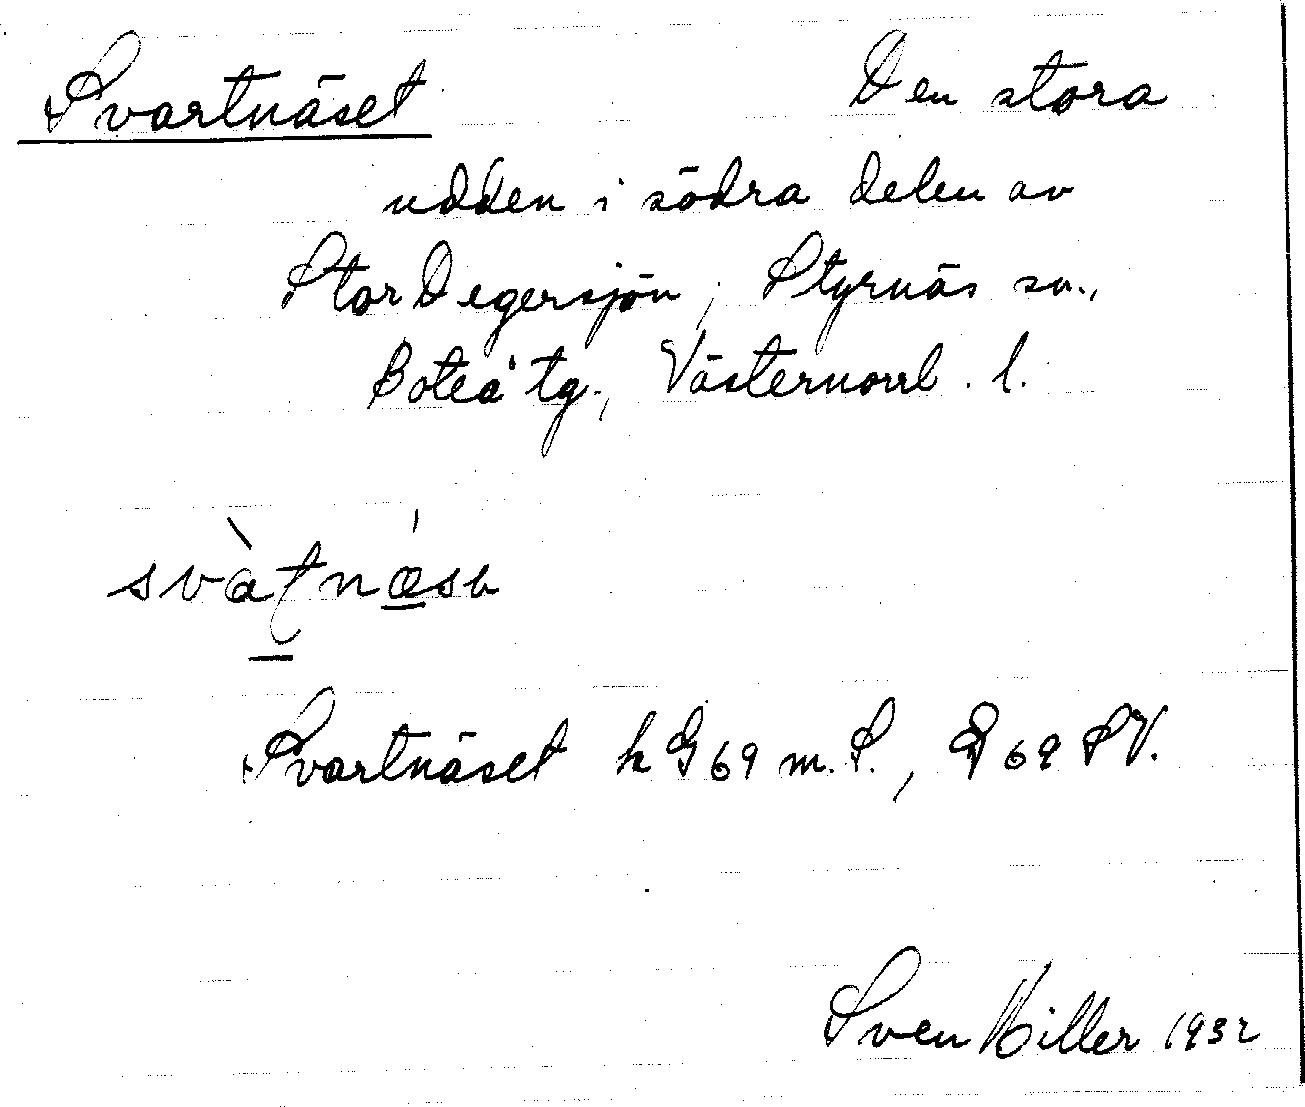 Svartnäset Den stora
udden i södra delen av
Stor Degersjön, Styrnäs sn.,
Boteå tg., Västernorrl. l.
svàt̠nǽsɩ
Svartnäset k G 69 m. S., G 69 SV.
Sven Hiller 1932